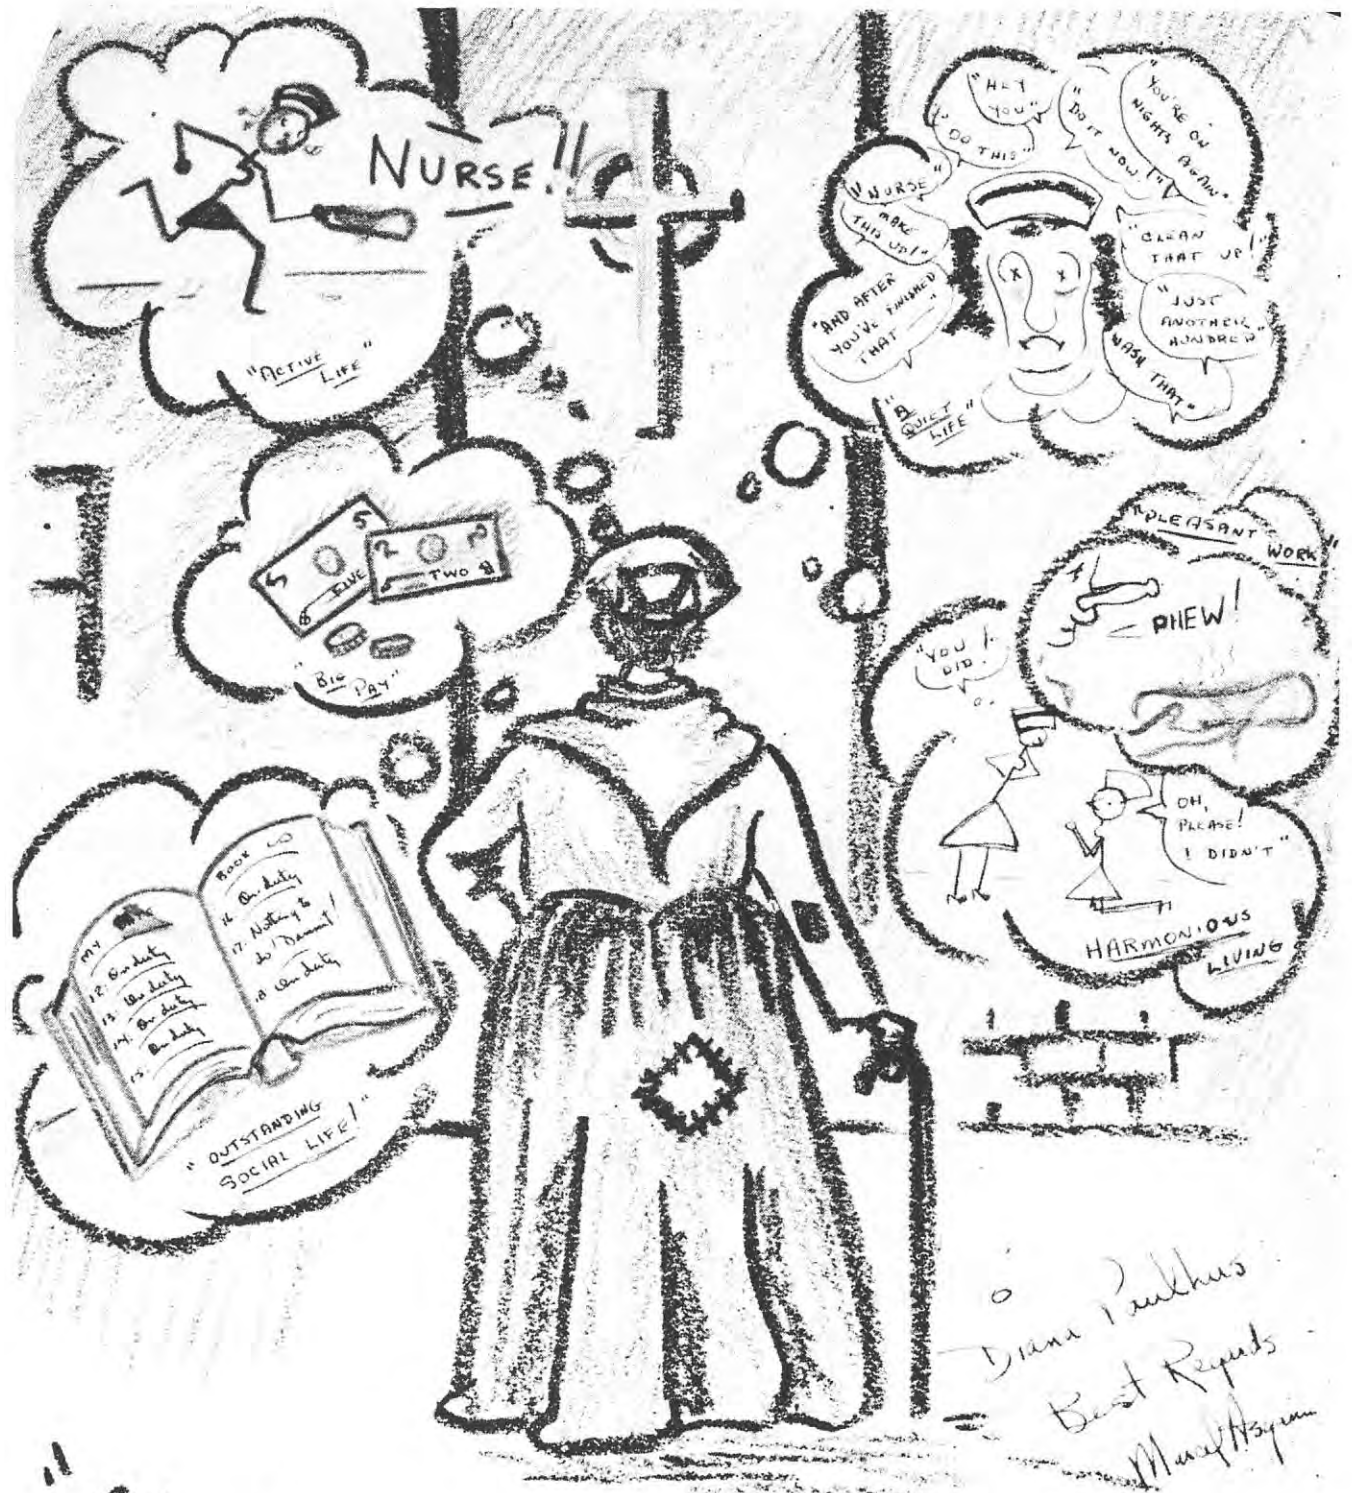 NURSE!!
"ACTIVE
LIFE"
"HEY
YOU"
"DO THIS"
"DO IT
NOW!"
"YOU'RE ON
NIGHTS AGAIN"
"NURSE"
MAKE
THIS UP!"
"CLEAN
THAT UP!"
"AND AFTER
YOU'VE FINISHED
THAT
"JUST
ANOTHER
HUNDRED"
WASH THAT"
"A
QUIET
LIFE"
5
5
FIVE
2
2
TWO
"BIG
PAY"
"PLEASANT WORK"
PHEW!
"YOU
DID!
OH,
PLEASE!
I DIDN'T"
HARMONIOUS
LIVING
MY
12. On duty
13. On duty
14. On duty
15. On duty
BOOK
16. On duty
17. Nothing to
do!
18 On duty
"OUTSTANDING
SOCIAL LIFE!"
Diana Paulhus
Best Regards
Marcel